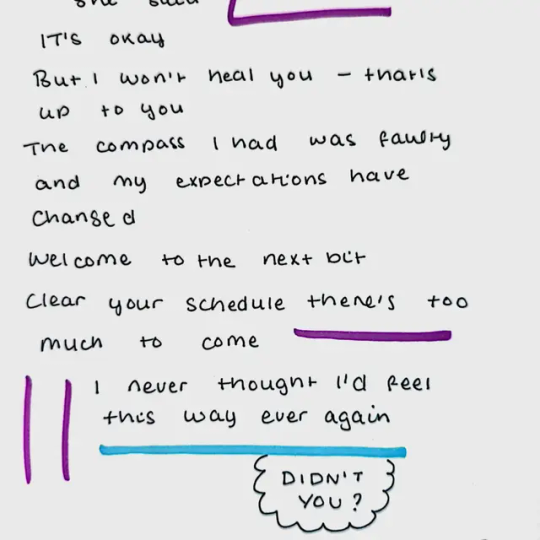 she said
IT'S okay
But I won't heal you – that's
up to you
The compass I had was faulty
and my expectations have
changed
Welcome to the next bit
Clear your schedule there's too
much to come
I never thought I'd feel
this way ever again
DIDN'T
YOU?